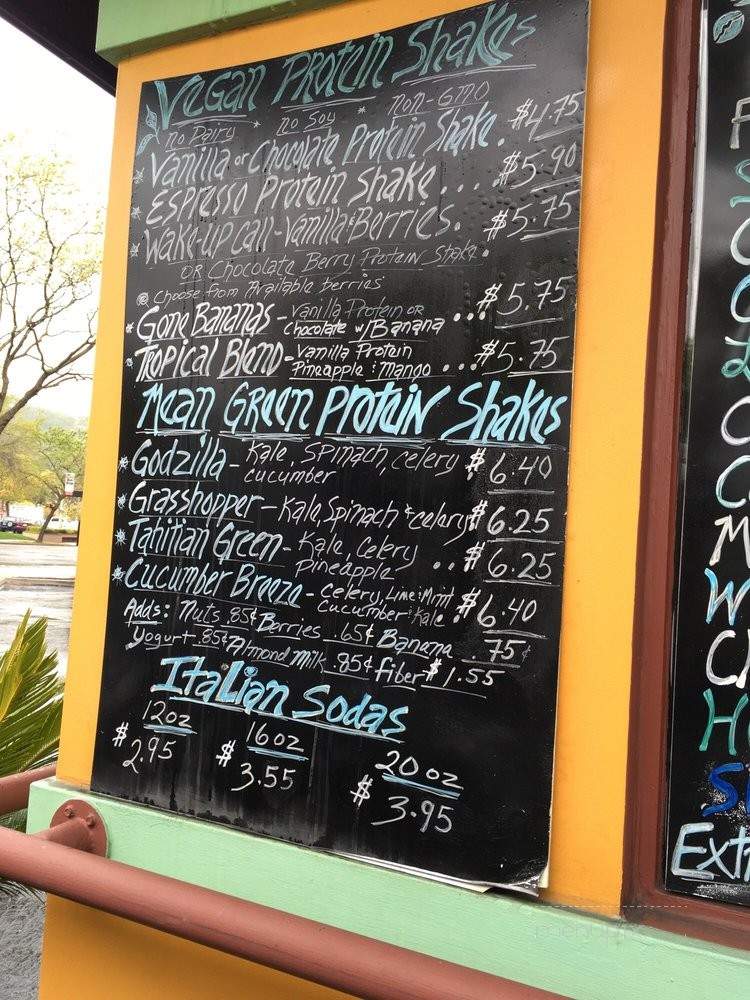 Vegan Protein Shakes
no Dairy * no Soy * non-GMO
* Vanilla or Chocolate Protein Shake. $4.75
* Espresso Protein Shake... $5.90
* Wake-up call - Vanilla & Berries. $5.75
OR Chocolate Berry Protein Shake.
@ Choose from Available berries
* Gone Bananas - Vanilla Protein OR ... $5.75
Chocolate w/ Banana
* Tropical Blend - Vanilla Protein ... $5.75
Pineapple & Mango
Mean Green Protein Shakes
* Godzilla - Kale, Spinach, celery $6.40
cucumber
* Grasshopper - Kale, Spinach & celery $6.25
* Tahitian Green - Kale, Celery .. $6.25
Pineapple
* Cucumber Breeze - Celery, Lime & Mint $6.40
cucumber & Kale.
Adds: Nuts .85¢ Berries .65¢ Banana .75¢
Yogurt .85¢ Almond milk .85¢ fiber $1.55
Italian Sodas
12oz 16oz 20oz
$2.95 $3.55 $3.95
Ext